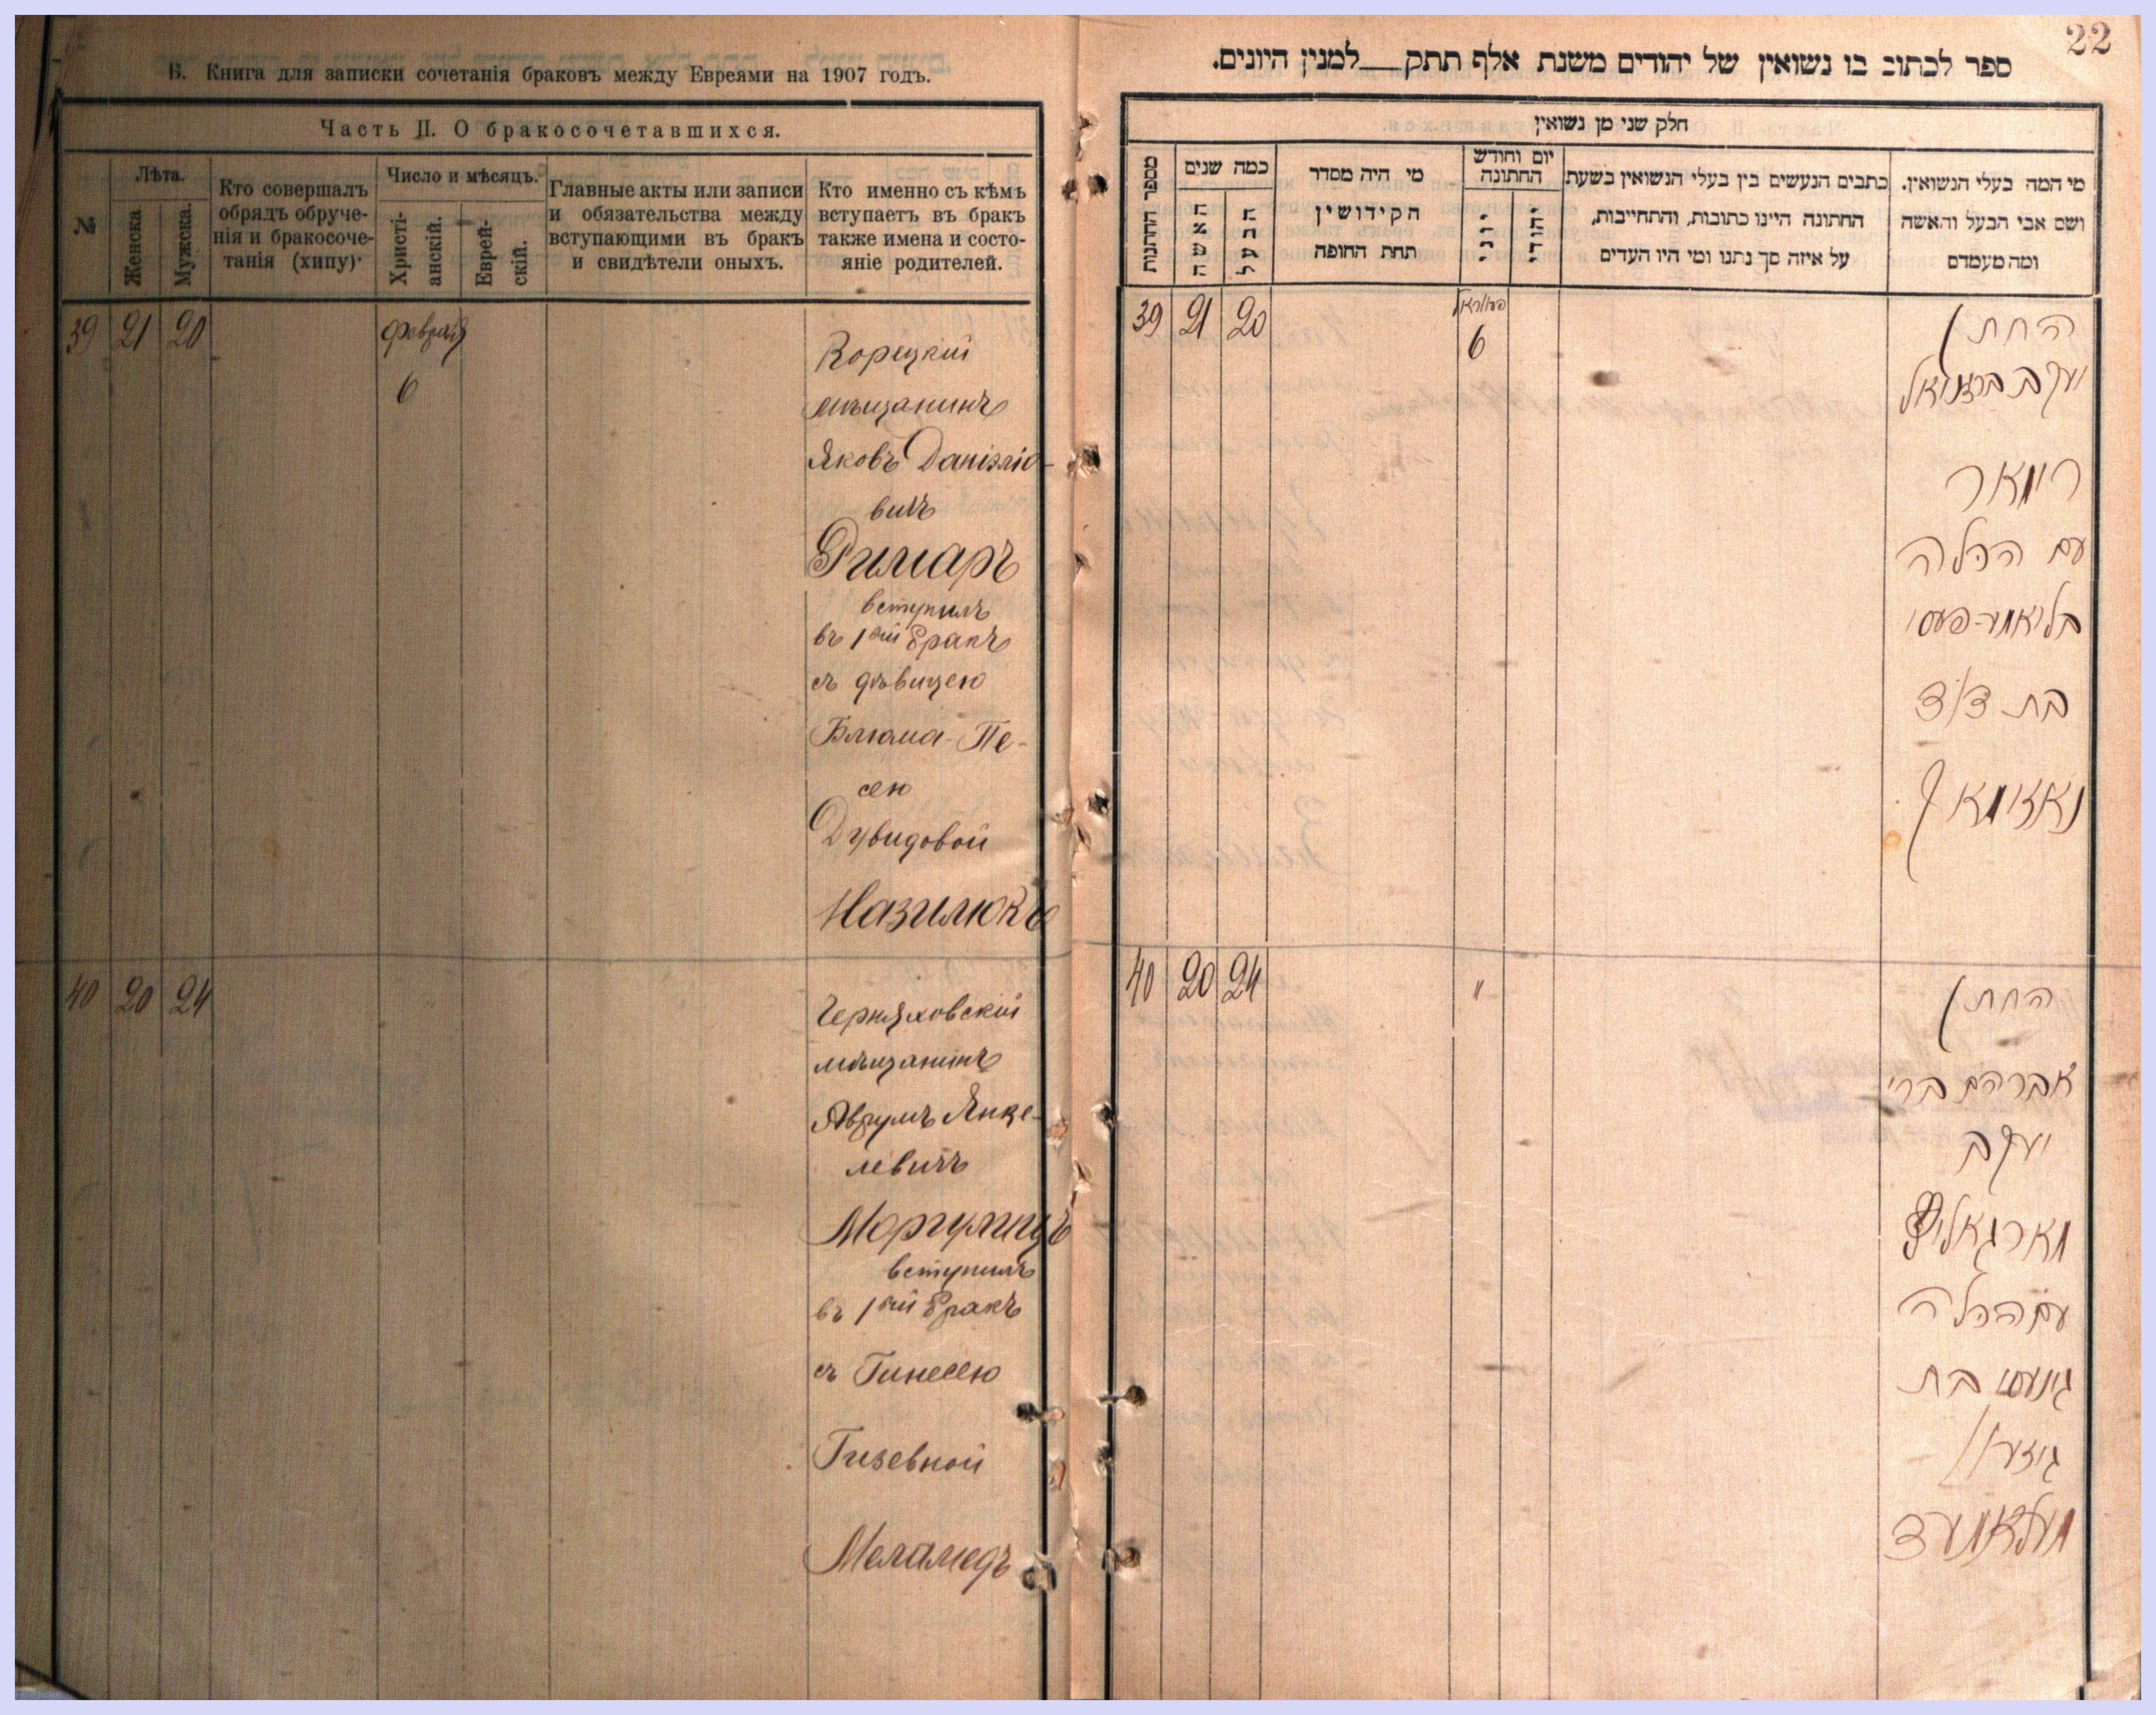 Б. Книга для записки сочетанія браковъ между Евреями на 1907 годъ.
Часть II. О бракосочетавшихся.
№
Лѣта.
Женска.
Мужска.
Кто совершалъ
обрядъ обруче-
нія и бракосоче-
танія (хипу)
Число и мѣсяцъ.
Христі-
анскій.
Еврей-
скій.
Главные акты или записи
и обязательства между
вступающими въ бракъ
и свидѣтели оныхъ.
Кто именно съ кѣмъ
вступаетъ въ бракъ
также имена и состо-
яніе родителей.
39 21 20
февраля
6
Корецкій
мѣщанинъ
Яковъ Даніэліо-
вичъ
Римаръ
вступилъ
въ 1ый бракъ
съ дѣвицею
Блюма-Пе-
сею
Дувидовой
Назилюкъ
40 20 24
Черняховскій
мѣщанинъ
Аврумъ Янке-
левичъ
Моргулицъ
вступилъ
въ 1ый бракъ
съ Гинесею
Гизевной
Меламедъ
22
ספר לכתוב בו נשואין של יהודים משנת אלף תתק__למנין היונים.
חלק שני מן נשואין
מספר החתנות
כמה שנים
האשה
הבעל
מי היה מסדר
הקידושין
תחת החופה
יום וחודש
החתונה
יוני
יהודי
כתבים הנעשים בין בעלי הנשואין בשעת
החתונה היינו כתובות, והתחייבות,
על איזה סך נתנו ומי היו העדים
מי המה בעלי הנשואין.
ושם אבי הבעל והאשה
ומה מעמדם
39 21 20
6
החתן
יעקב
רימאר
עם הכלה
בליאמע-פעסי
בת דוד
40 20 24
"
החתן
אברהם ברי
יעקב
מארגאליץ
עם הכלה
גינעסי בת
מעלאמעד